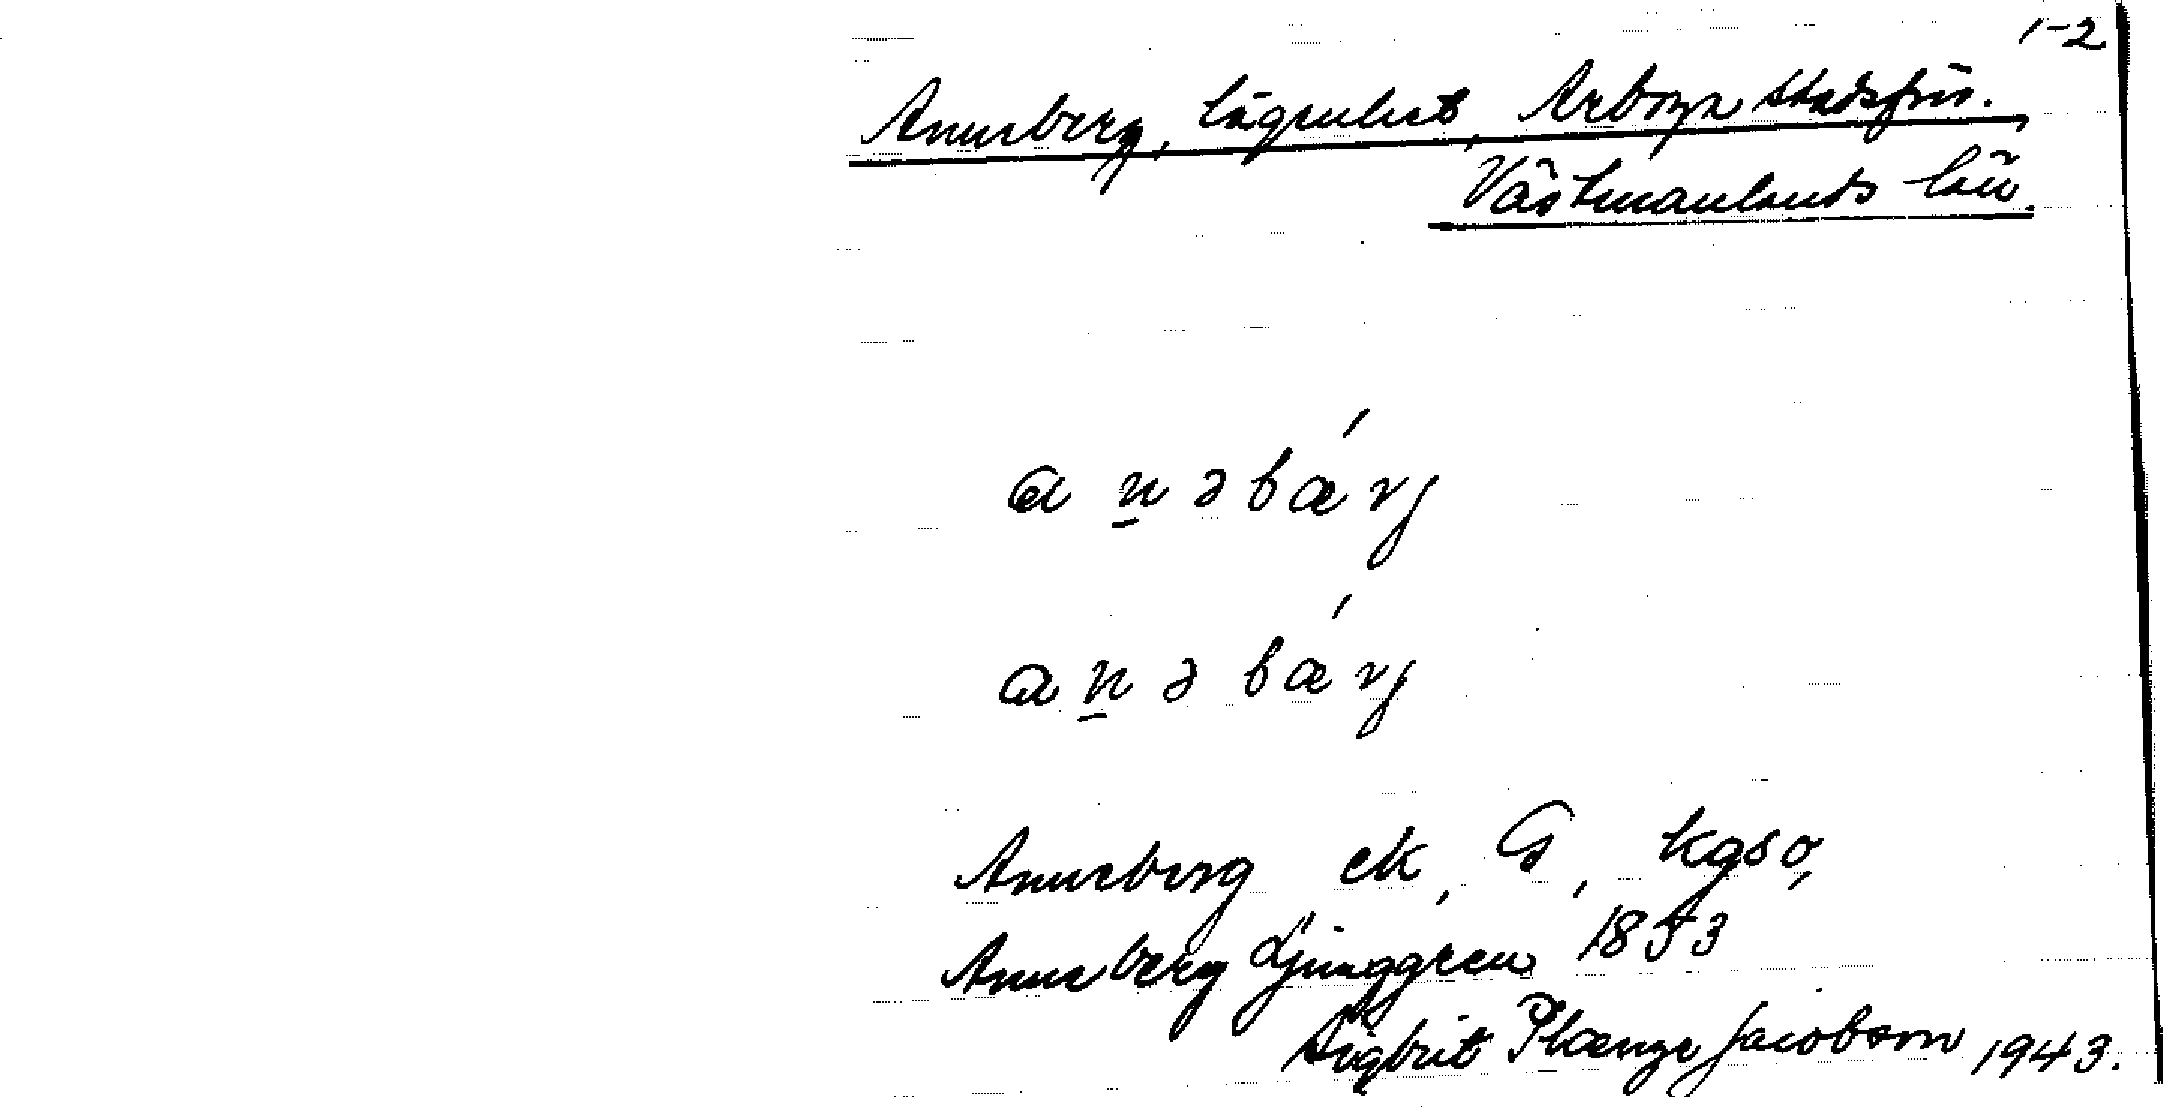 1-2
Anneberg, lägenhet, Arboga stadsförs.
Västmanlands län.
anəbærj
anəbærj
Anneberg ek, G, kgso,
Anneberg Ljunggren 1853
Sigbrit Plænge Jacobson 1943.